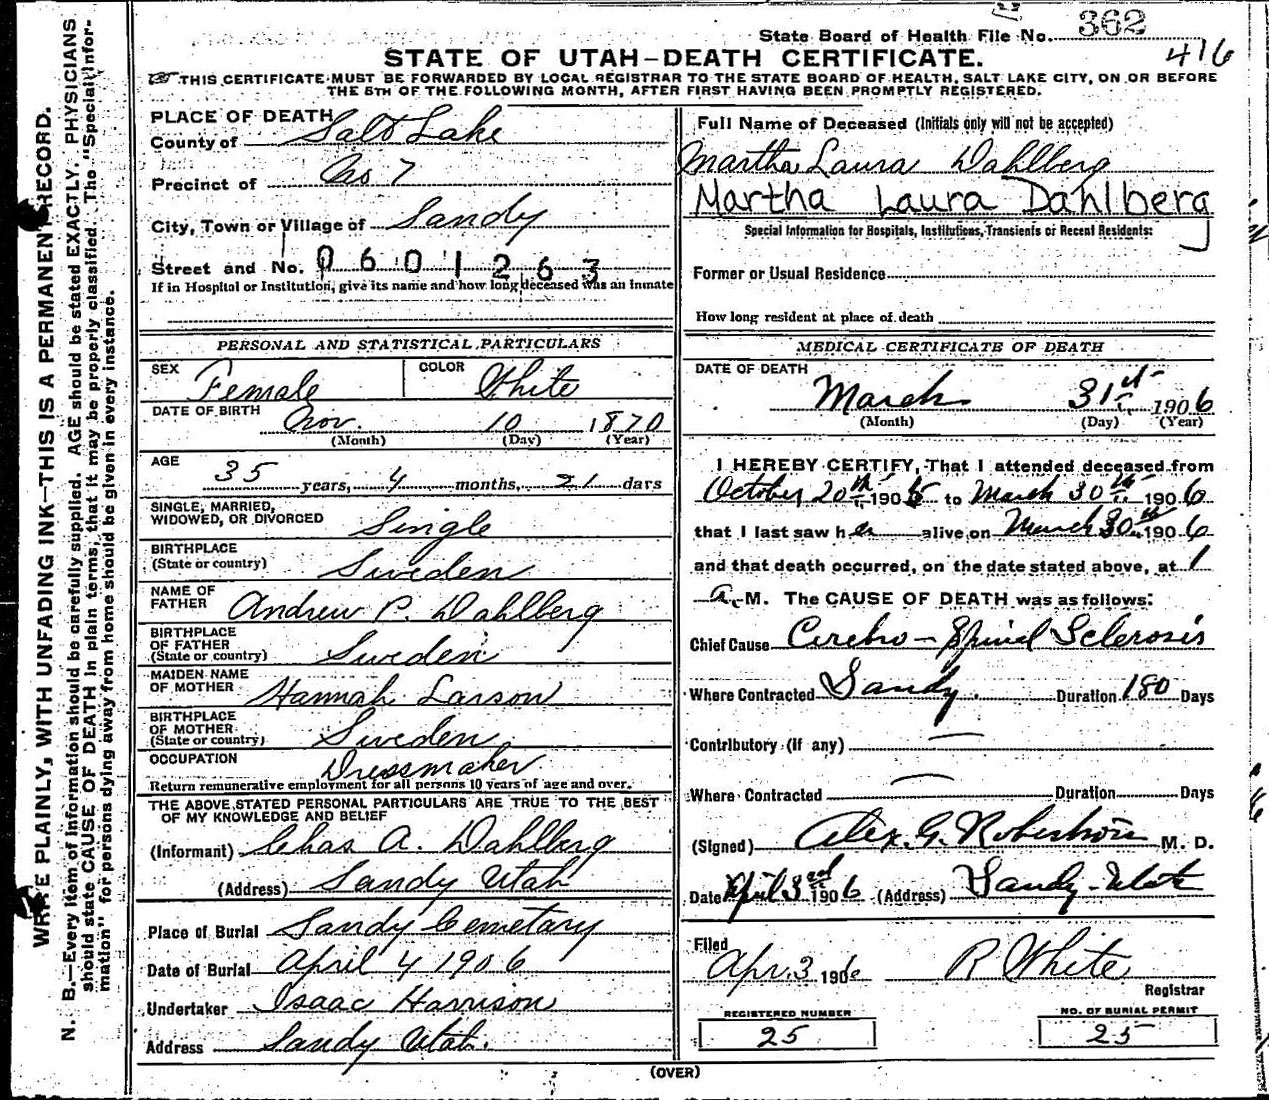 State Board of Health File No. 362
416
STATE OF UTAH–DEATH CERTIFICATE.
THIS CERTIFICATE MUST BE FORWARDED BY LOCAL REGISTRAR TO THE STATE BOARD OF HEALTH, SALT LAKE CITY, ON OR BEFORE
THE 5TH OF THE FOLLOWING MONTH, AFTER FIRST HAVING BEEN PROMPTLY REGISTERED.
WRITE PLAINLY, WITH UNFADING INK—THIS IS A PERMANENT RECORD.
N. B.—Every item of information should be carefully supplied. AGE should be stated EXACTLY. PHYSICIANS
should state CAUSE OF DEATH in plain terms, that it may be properly classified. The "Special Infor-
mation" for persons dying away from home should be given in every instance.
PLACE OF DEATH
County of Salt Lake
Precinct of No 7
City, Town or Village of Sandy
Street and No. 0601263
If in Hospital or Institution, give its name and how long deceased was an inmate
PERSONAL AND STATISTICAL PARTICULARS
SEX Female COLOR White
DATE OF BIRTH Nov. 10 1870
(Month) (Day) (Year)
AGE
35 years, 4 months, 21 days
SINGLE, MARRIED,
WIDOWED, OR DIVORCED Single
BIRTHPLACE
(State or country) Sweden
NAME OF
FATHER Andrew P. Dahlberg
BIRTHPLACE
OF FATHER
(State or country) Sweden
MAIDEN NAME
OF MOTHER Hannah Larson
BIRTHPLACE
OF MOTHER
(State or country) Sweden
OCCUPATION Dressmaker
Return remunerative employment for all persons 10 years of age and over.
THE ABOVE STATED PERSONAL PARTICULARS ARE TRUE TO THE BEST
OF MY KNOWLEDGE AND BELIEF
(Informant) Chas A. Dahlberg
(Address) Sandy Utah
Place of Burial Sandy Cemetary
Date of Burial April 4 1906
Undertaker Isaac Harrison
Address Sandy Utah.
Full Name of Deceased (Initials only will not be accepted)
Martha Laura Dahlberg
Martha Laura Dahlberg
Special Information for Hospitals, Institutions, Transients or Recent Residents:
Former or Usual Residence
How long resident at place of death
MEDICAL CERTIFICATE OF DEATH
DATE OF DEATH
March 31st 1906
(Month) (Day) (Year)
I HEREBY CERTIFY, That I attended deceased from
October 20th 1905 to March 30th 1906
that I last saw her alive on March 30th 1906
and that death occurred, on the date stated above, at 1
a. M. The CAUSE OF DEATH was as follows:
Chief Cause Cerebro-Spinal Sclerosis
Where Contracted Sandy. Duration 180 Days
Contributory (If any) —
Where Contracted — Duration Days
(Signed) Alex. G. Robertson M. D.
Date April 3rd 1906 (Address) Sandy-Utah
Filed
Apr. 3 1906 R White
Registrar
REGISTERED NUMBER
25
NO. OF BURIAL PERMIT
25
(OVER)